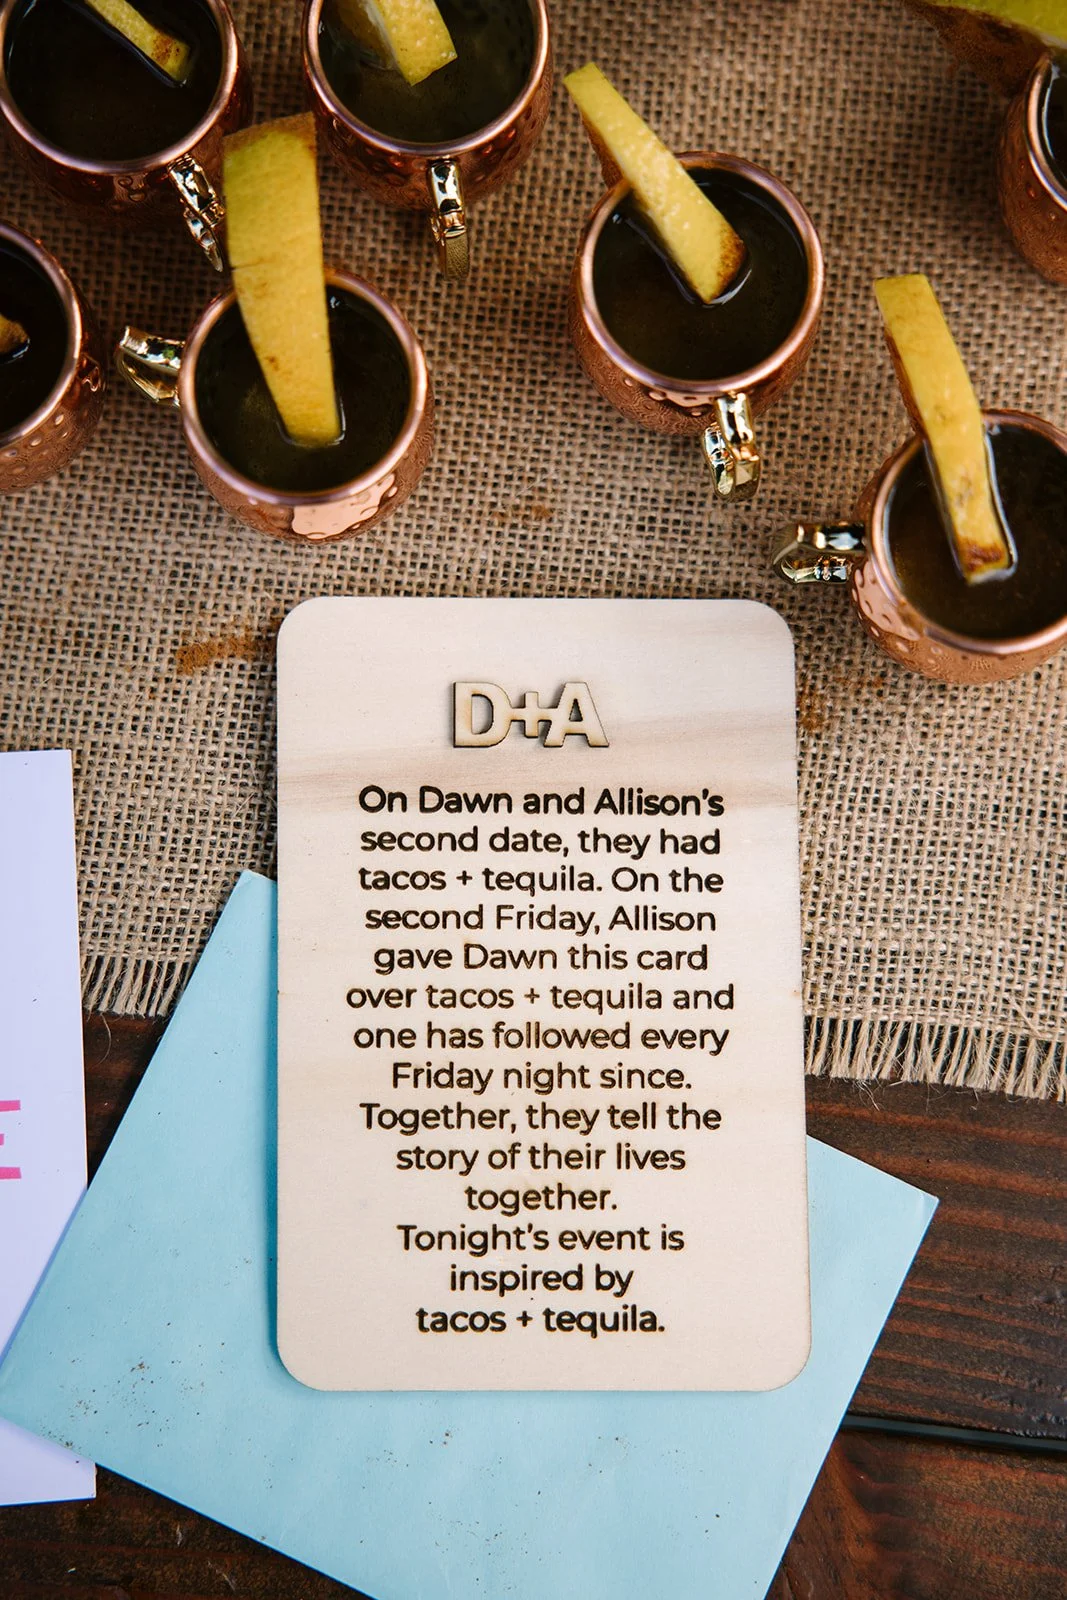 D+A
On Dawn and Allison's
second date, they had
tacos + tequila. On the
second Friday, Allison
gave Dawn this card
over tacos + tequila and
one has followed every
Friday night since.
Together, they tell the
story of their lives
together.
Tonight's event is
inspired by
tacos + tequila.